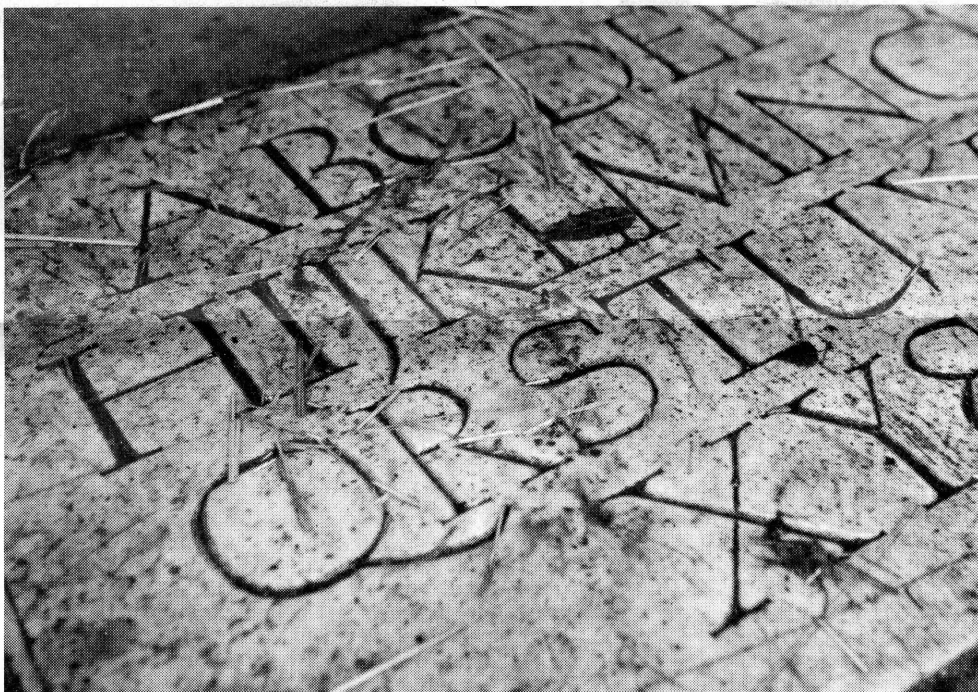 ABCDE
HIJKLMNO
QRSTU
XY&